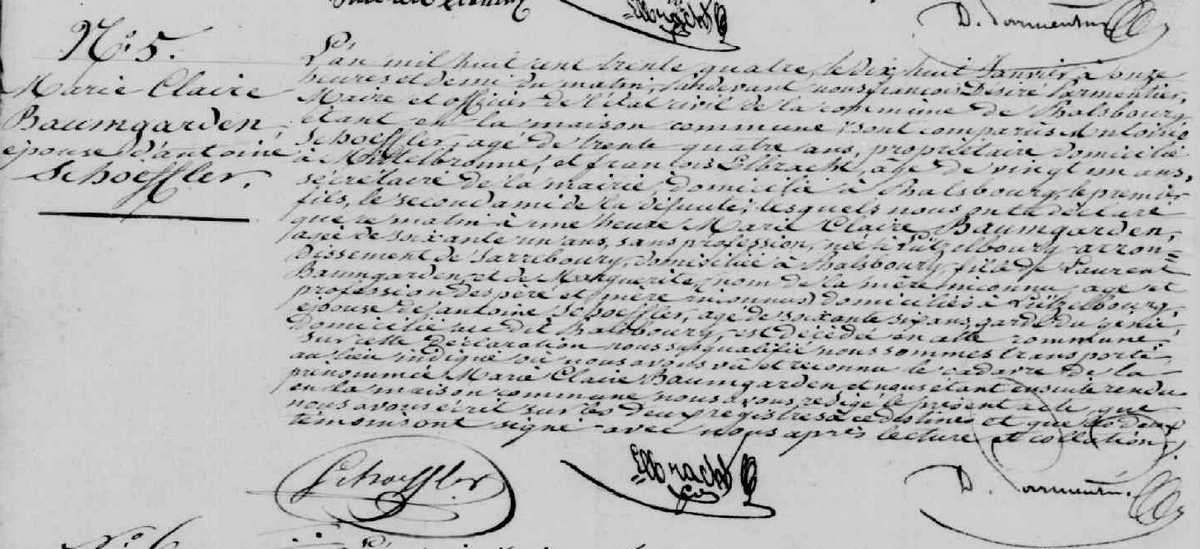 Elbracht
D. Parmentier
N.o 5.
Marie Claire
Baumgarden,
épouse d'antoine
Schoeffler.
L'an mil huit cent trente quatre, le dix huit Janvier, à onze
heures et demi du matin, pardevant nous françois Désiré Parmentier,
Maire et officier de l'état civil de la commune de Phalsbourg,
étant en la maison commune; sont comparus Antoine
Schoeffler, agé de trente quatre ans, propriétaire domicilié
à Mittelbronne, et francois Elbracht, âgé de vingt un ans,
sécrétaire de la mairie, domicilié à Phalsbourg, le premier
fils, le second ami de la défunte; lesquels nous ont déclaré
que ce matin à une heure Marie Claire Baumgarden,
agée de soixante un ans, sans profession, née à Lutzelbourg arron=
dissement de Sarrebourg, domiciliée à Phalsbourg, fille de Laurent
Baumgarden, et de Marguerite, (nom de la mère inconnu, age et
profession des père et mère inconnus) domiciliés à Lutzelbourg,
épouse d'antoine Schoeffler, agé de soixante six ans, garde du génie,
domicilié au dit Phalsbourg, est décédée en cette commune.
Sur cette déclaration nous susqualifié nous sommes transporté
au lieu indiqué où nous avons vu et reconnu le cadavre de la
prénommée Marie Claire Baumgarden et nous étant ensuite rendu
en la maison commune nous avons rédigé le présent acte, que
nous avons écrit sur les deux registres à ce destinés et que les deux
témoins ont signé avec nous après lecture et collation.
Schoeffler
Elbracht
D. Parmentier
N.o 6